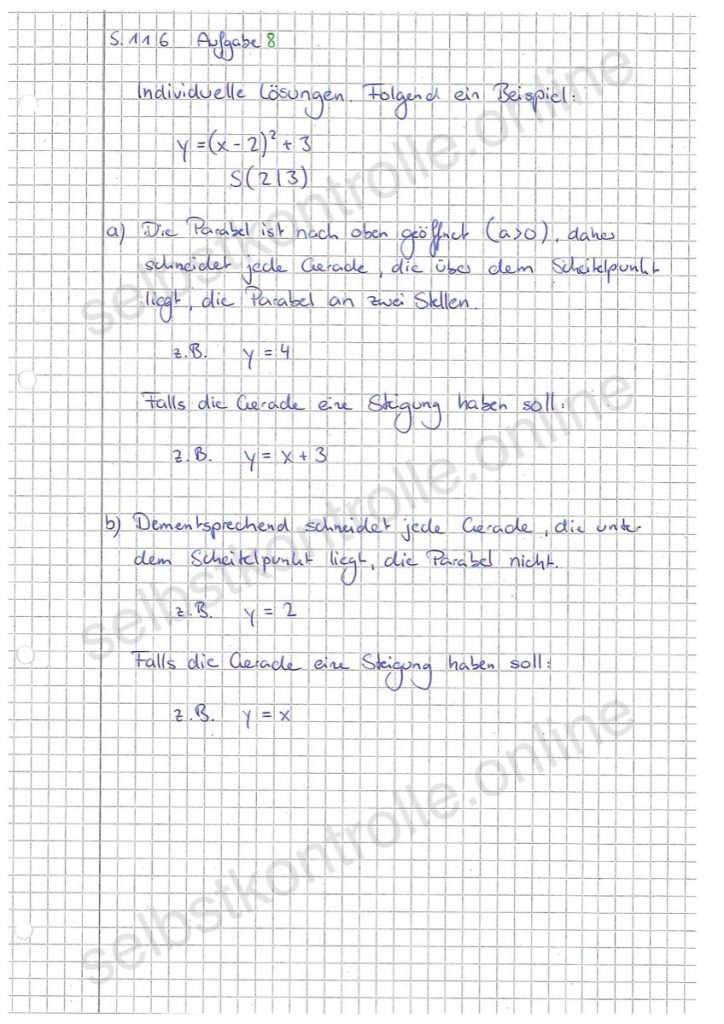 S. 116 Aufgabe 8
Individuelle Lösungen. Folgend ein Beispiel:
y = (x - 2)² + 3
S(2|3)
a) Die Parabel ist nach oben geöffnet (a>0), daher
schneidet jede Gerade, die über dem Scheitelpunkt
liegt, die Parabel an zwei Stellen.
z.B. y = 4
Falls die Gerade eine Steigung haben soll:
z.B. y = x + 3
b) Dementsprechend schneidet jede Gerade, die unter
dem Scheitelpunkt liegt, die Parabel nicht.
z.B. y = 2
Falls die Gerade eine Steigung haben soll:
z.B. y = x
selbstkontrolle.online
selbstkontrolle.online
selbstkontrolle.online